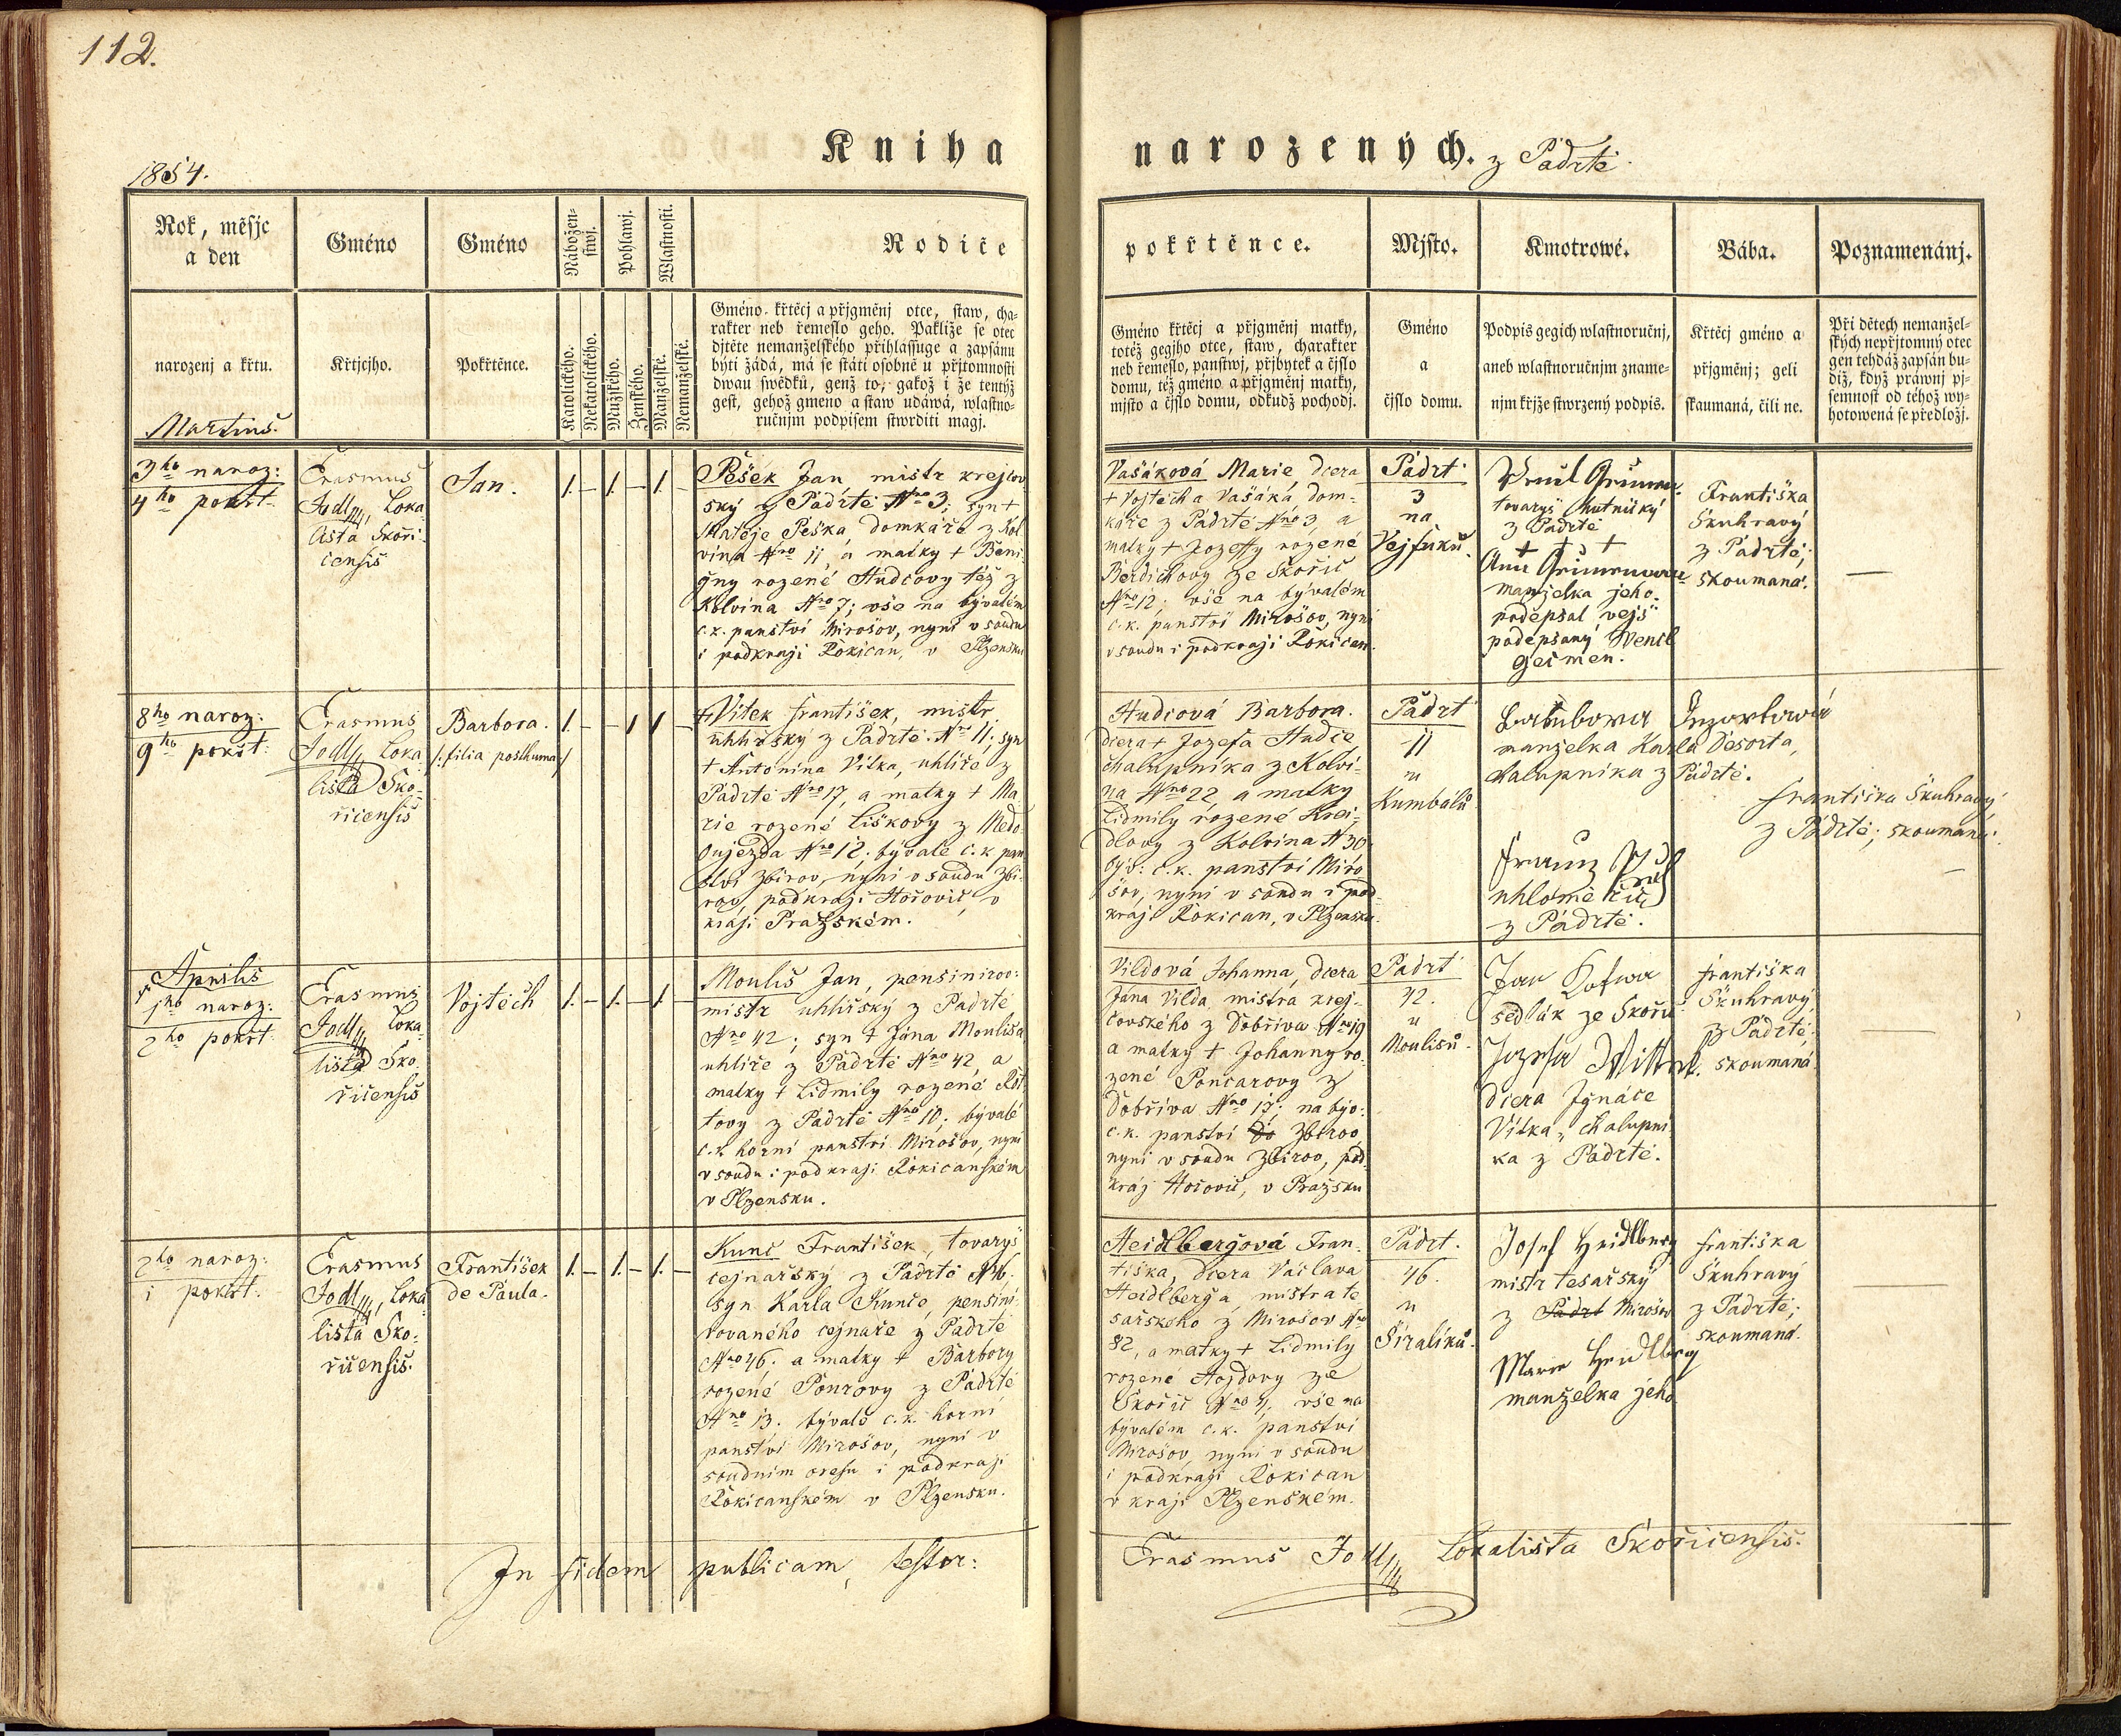 112.
Kniha narozených. z Padrtě.
1854.
Rok, měsjc
a den
Gméno
Gméno
Nábožen-
stwj.
Pohlawj.
Wlastnosti.
Rodiče
pokřtěnce.
Mjsto.
Kmotrowé.
Bába.
Poznamenánj.
narozenj a křtu.
Křtjcjho.
Pokřtěnce.
Katolického.
Nekatolického.
Mužského.
Ženského.
Manželské.
Nemanželské.
Gméno křtěcj a přjgměnj otce, staw, cha-
rakter neb řemeslo geho. Pakliže se otec
djtěte nemanželského přihlassuge a zapsánu
býti žádá, má se státi osobně u přjtomnosti
dwau swědků, genž to, gakož i že tentýž
gest, gehož gmeno a staw udáwá, wlastno-
ručnjm podpisem stwrditi magj.
Gméno křtěcj a přjgměnj matky,
totéž gegjho otce, staw, charakter
neb řemeslo, panstwj, přjbytek a čjslo
domu, též gméno a přjgměnj matky,
mjsto a čjslo domu, odkudž pochodj.
Gméno
a
čjslo domu.
Podpis gegich wlastnoručnj,
aneb wlastnoručnjm zname-
njm křjže stwrzený podpis.
Křtěcj gméno a
přjgměnj; geli
skaumaná, čili ne.
Při dětech nemanžel-
ských nepřjtomný otec
gen tehdáž zapsán bu-
diž, když práwnj pj-
semnost od téhož wy-
hotowená se předložj.
Martius.
3ho naroz:
4ho pokřt.
Erasmus
Jodl, Loka
lista Skoři-
censis
Jan.
1. – 1. – 1. –
Pešek Jan, mistr krejčov-
ský z Padrtě Nro 3; syn +
Matěje Peška, domkáře z Kol
vína Nro 11, a matky + Beni-
gny rozené Hudcovy též z
Kolvína Nro 7; vše na bývalém
c.k. panství Mirošov, nyní v soudu
i podkraji Rokican, v Plzensku
Vašáková Marie, dcera
+ Vojtěcha Vašáka, dom-
káře z Padrtě Nro 3, a
matky + Jozeffy rozené
Berdichovy ze Skořic
Nro 12; vše na bývalém
c.k. panství Mirošov, nyní
v soudu i podkraji Rokican.
Padrť
3
na
Vejfuků.
tovaryš hutnický
z Padrtě
+ + +
manželka jeho.
podepsal vejš
podepsaný Wencl
Geimen.
Františka
Skuhravý
z Padrtě;
skoumaná.
—
8ho naroz:
9ho pokřt:
Erasmus
Jodl, Loka
lista Sko-
řicensis
Barbora.
/:filia posthuma:/
1. – – 1 1 –
+ Vítek František, mistr
uhlířský z Padrtě Nro 11; syn
+ Antonína Vítka, uhlíře z
Padrtě Nro 17, a matky + Ma
rie rozené Liškovy z Medo
oujezda Nro 12; bývalé c.k pan
ství Zbirov, nyní v soudu Zbi-
rov, podkraji Hořovic, v
kraji Pražském.
Hudcová Barbora.
dcera + Jozefa Hudce
chalupníka z Kolví-
na Nro 22, a matky
Lidmily rozené Krei-
dlovy z Kolvína N 30
býv: c.k. panství Miro
šov, nyní v soudu i pod
kraji Rokican, v Plzensku.
Padrť
11
u
Kumbálů
manželka Karla Desorta,
chalupníka z Padrtě.
Franz
z Padrtě.
Františka Skuhravý
z Padrtě; skoumaná.
—
Aprilis
1ho naroz:
2ho pokřt:
Erasmus
Jodl, Loka
lista Sko-
řicensis
Vojtěch
1. – 1. – 1. –
Moulis Jan, pensinirov:
mistr uhlířský z Padrtě
Nro 42; syn + Jána Moulisa,
uhlíře z Padrtě Nro 42, a
matky + Lidmily rozené
tovy z Padrtě Nro 10; bývalé
c.k. horní panství Mirošov, nyní
v soudu i podkraji Rokicanském
v Plzensku.
Vildová Johanna, dcera
Jána Vilda, mistra krej-
čovského z Dobříva Nro 19
a matky + Johanny ro-
zené Poncarovy z
Dobříva Nro 17; na býv:
c.k. panství Zbirov,
nyní v soudu Zbirov, pod
kraj Hořovic, v Pražsku
Padrť
42.
u
Moulisů.
sedlák ze Skořic
dcera Ignáce
Vítka, chalupní
ka z Padrtě.
Františka
Skuhravý
z Padrtě;
skoumaná.
—
2ho naroz:
i pokřt:
Erasmus
Jodl, Loka
lista Sko-
řicensis.
František
de Paula.
1. – 1. – 1. –
Kunc František, tovaryš
cejnařský z Padrtě N46.
syn Karla Kunce, pensini-
rovaného cejnaře z Padrtě
Nro 46. a matky + Barbory
rozené Pourovy z Padrtě
Nro 13. bývalé c.k. horní
panství Mirošov, nyní v
soudním oresu i podkraji
Rokicanském v Plzensku.
Heidlbergová Fran-
tiška, dcera Václava
Heidlberga, mistra te
sařského z Mirošov Nro
82, a matky + Lidmily
rozené Hojdovy ze
Skořic Nro 4, vše na
bývalém c.k. panství
Mirošov, nyní v soudu
i podkraji Rokican
v kraji Plzenském.
Padrť.
46.
u
Širalíků.
Josef Heidlberg
mistr tesařský
z Padrt Mirošov
Marie Heidlberg
manželka jeho
Františka
Skuhravý
z Padrtě;
skoumaná.
—
In fidem publicam, testor:
Erasmus Jodl, Lokalista Skořicensis.